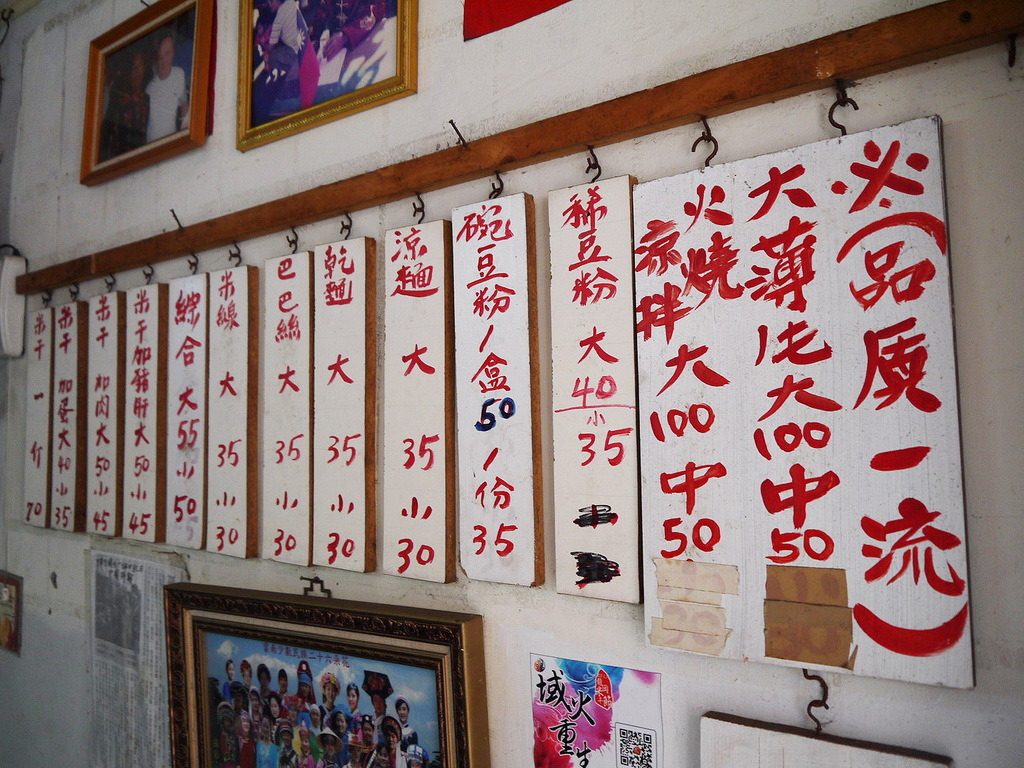 ※(品质一流)
大薄片大100中50
火燒
涼拌
大100中50
稀豆粉大40小35
碗豆粉1盒50 1份35
涼麵大35小30
乾麵大35小30
巴巴絲大35小30
米線大35小30
綜合大55小50
米干加豬肝大50小45
米干加肉大50小45
米干加蛋大40小35
米干一斤70
雲南少數民族二十六朵花
域火重生